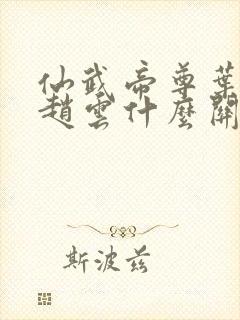 仙武帝尊葉
趙雲什麼關
斯波茲